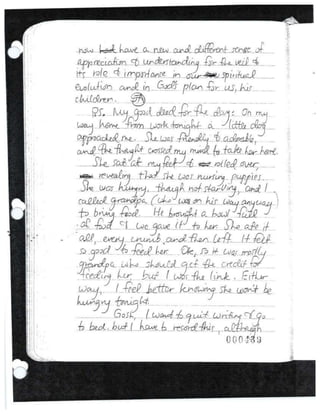 now have a new and different sense of
appreciation & understanding for the veil &
its role & importance in our spiritual
evolution and in God's plan for us, his
children.
P.S. My good deed for the day: On my
way home from work tonight a little dog
approached me. She was friendly & adorable,
and the thought crossed my mind to take her home.
She sat at my feet & rolled over,
revealing that she was nursing puppies.
She was hungry, though not starving, and I
called grandpa (who was on his way anyway)
to bring food. He brought a bowl full
of food & we gave it to her. She ate it
all, every crumb, and then left. It felt
so good to feed her. Ok, so it was mostly
grandpa who should get the credit for
feeding her, but I was the link. Either
way, I feel better knowing she won't be
hungry tonight.
Gosh, I want to quit writing & go
to bed, but I have to record this, although
000489